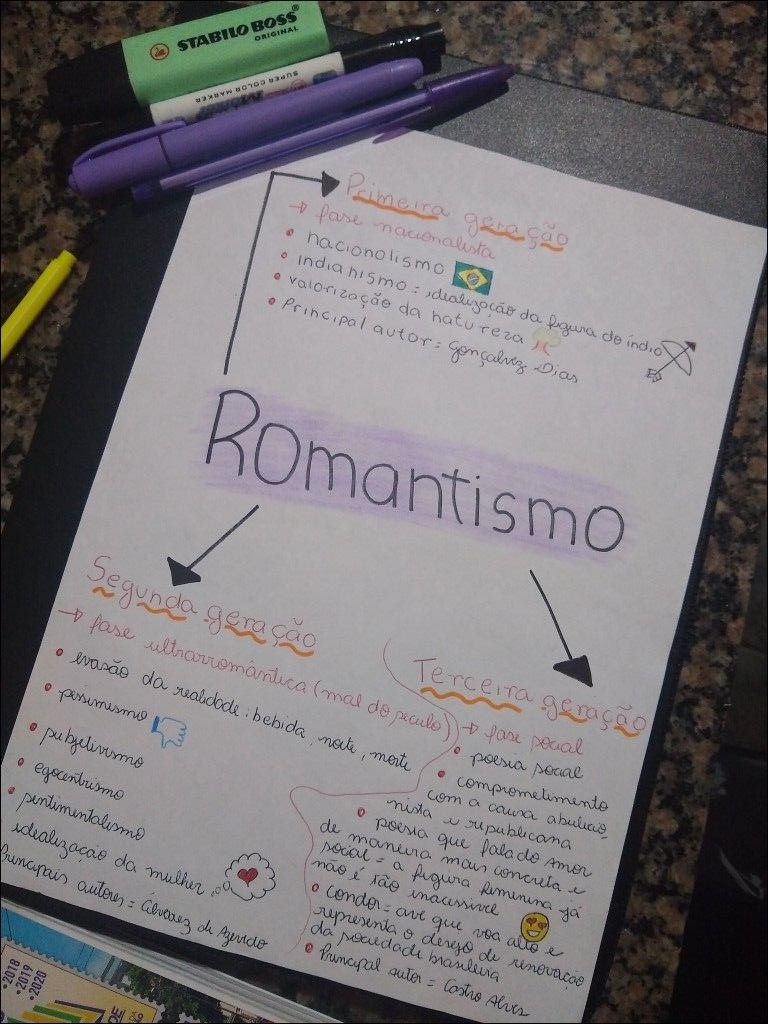 STABILO BOSS
ORIGINAL
SUPER COLOR MARKER
Primeira geração
→ fase nacionalista
• nacionolismo
• indianismo = idealização da figura do índio
• valorização da natureza
• Principal autor = Gonçalvez Dias
Romantismo
Segunda geração
→ fase ultrarromântica (mal do século)
• evasão da realidade: bebida, noite, morte
• pessimismo
• subjetivismo
• egocentrismo
• sentimentalismo
idealização da mulher
Principais autores = Álvarez de Azevedo
Terceira geração
→ fase social
• poesia social
• comprometimento
com a causa abulicio,
nista e republicana
• poesia que fala do Amor
de maneira mais concreta e
social = a figura feminina já
não é tão inacessível
• condor = ave que voa alto e
representa o desejo de renovação
da sociedade brasileira
• Principal autor = Castro Alves
•2018
•2019
•2020